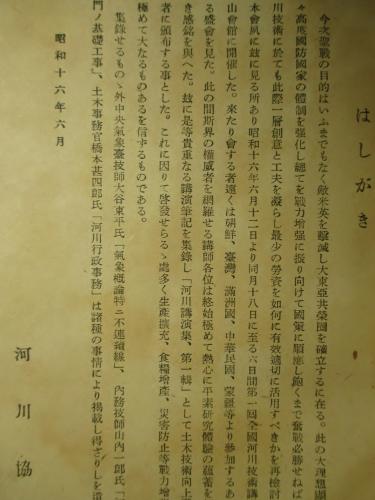 はしがき
今次聖戰の目的はいふまでもなく敵米英を擊滅し大東亞共榮圈を確立するに在る。此の大理想顯
々高度國防國家の體制を强化し總てを戰力增强に振り向けて國策に順應し飽くまで奮戰必勝せねば
川技術に於ても此際一層創意と工夫を凝らし最少の勞資を如何に有效適切に活用すべきかを再檢討
本會夙に玆に見る所あり昭和十六年六月十二日より同月十八日に至る六日間第一囘全國河川技術講
山會館に開催した。來たり會する者遠くは朝鮮、臺灣、滿洲國、中華民國、蒙疆等より參加するあ
る盛會を見た。此の間斯界の權威者を網羅せる講師各位は終始極めて熱心に平素硏究體驗の蘊蓄を
き感銘を與へた。玆に是等貴重なる講演筆記を集錄し「河川講演集、第一輯」として土木技術向上
者に頒布する事とした。これに因りて啓發せらるゝ處多く生產擴充、食糧增產、災害防止等戰力增
極めて大たるものあるを信ずるものである。
集錄せるものゝ外中央氣象臺技師大谷東平氏「氣象槪論特ニ不連續線」、內務技師山內一郞氏「
門ノ基礎工事」、土木事務官橋本甚四郞氏「河川行政事務」は諸種の事情により揭載し得ざりしを遺
昭和十六年六月
河川協